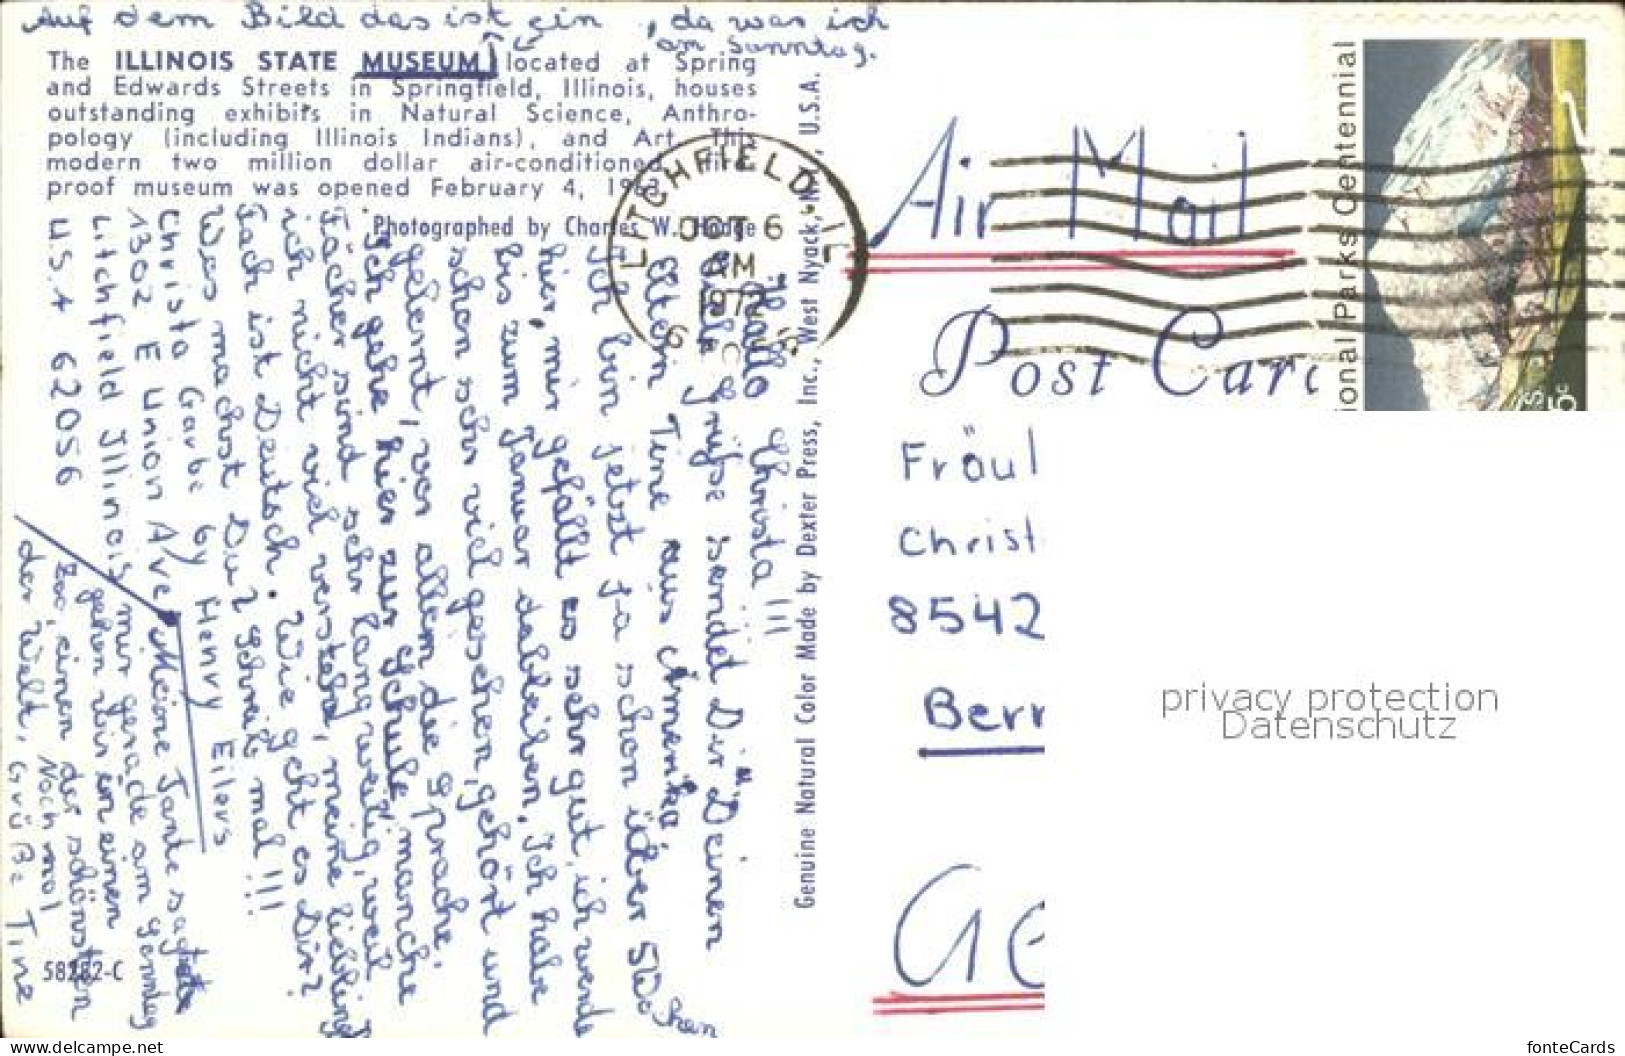 Auf dem Bild das ist ein , da war ich
am Sonntag.
The ILLINOIS STATE MUSEUM, located at Spring
and Edwards Streets in Springfield, Illinois, houses
outstanding exhibits in Natural Science, Anthro-
pology (including Illinois Indians), and Art. This
modern two million dollar air-conditioned, fire-
proof museum was opened February 4, 1963.
Photographed by Charles W. Hodge
Hallo Christa!!!
Grüße sendet Dir Deinen
Eltern Tine aus Amerika.
Ich bin jetzt ja schon über 5 Wochen
hier, mir gefällt es sehr gut, ich werde
bis zum Januar dableiben. Ich habe
schon sehr viel gesehen, gehört und
gelernt, vor allem die Sprache.
Ich gehe hier zur Schule, manche
Fächer sind sehr langweilig, weil
ich nicht viel verstehe, meine lieblings
Fach ist Deutsch. Wie geht es Dir?
Was machst Du? Schreib mal!!!
Christa Garbe by Henry Eilers
1302 E Union Ave
Litchfield Illinois
U.S.A 62056
Meine Tante sagte
mir gerade am Sonntag
gehen wir in einen
Zoo, einen der schönsten
der Welt, Noch mal
Grüße Tine
58262-C
Genuine Natural Color Made by Dexter Press, Inc., West Nyack, N.Y., U.S.A.
LITCHFIELD, IL
OCT 6
AM
1972
Air Mail
Post Car
ional Parks Centennial
Fräul
Christ
8542
Berr
GE
privacy protection
Datenschutz
www.delcampe.net
fonteCards